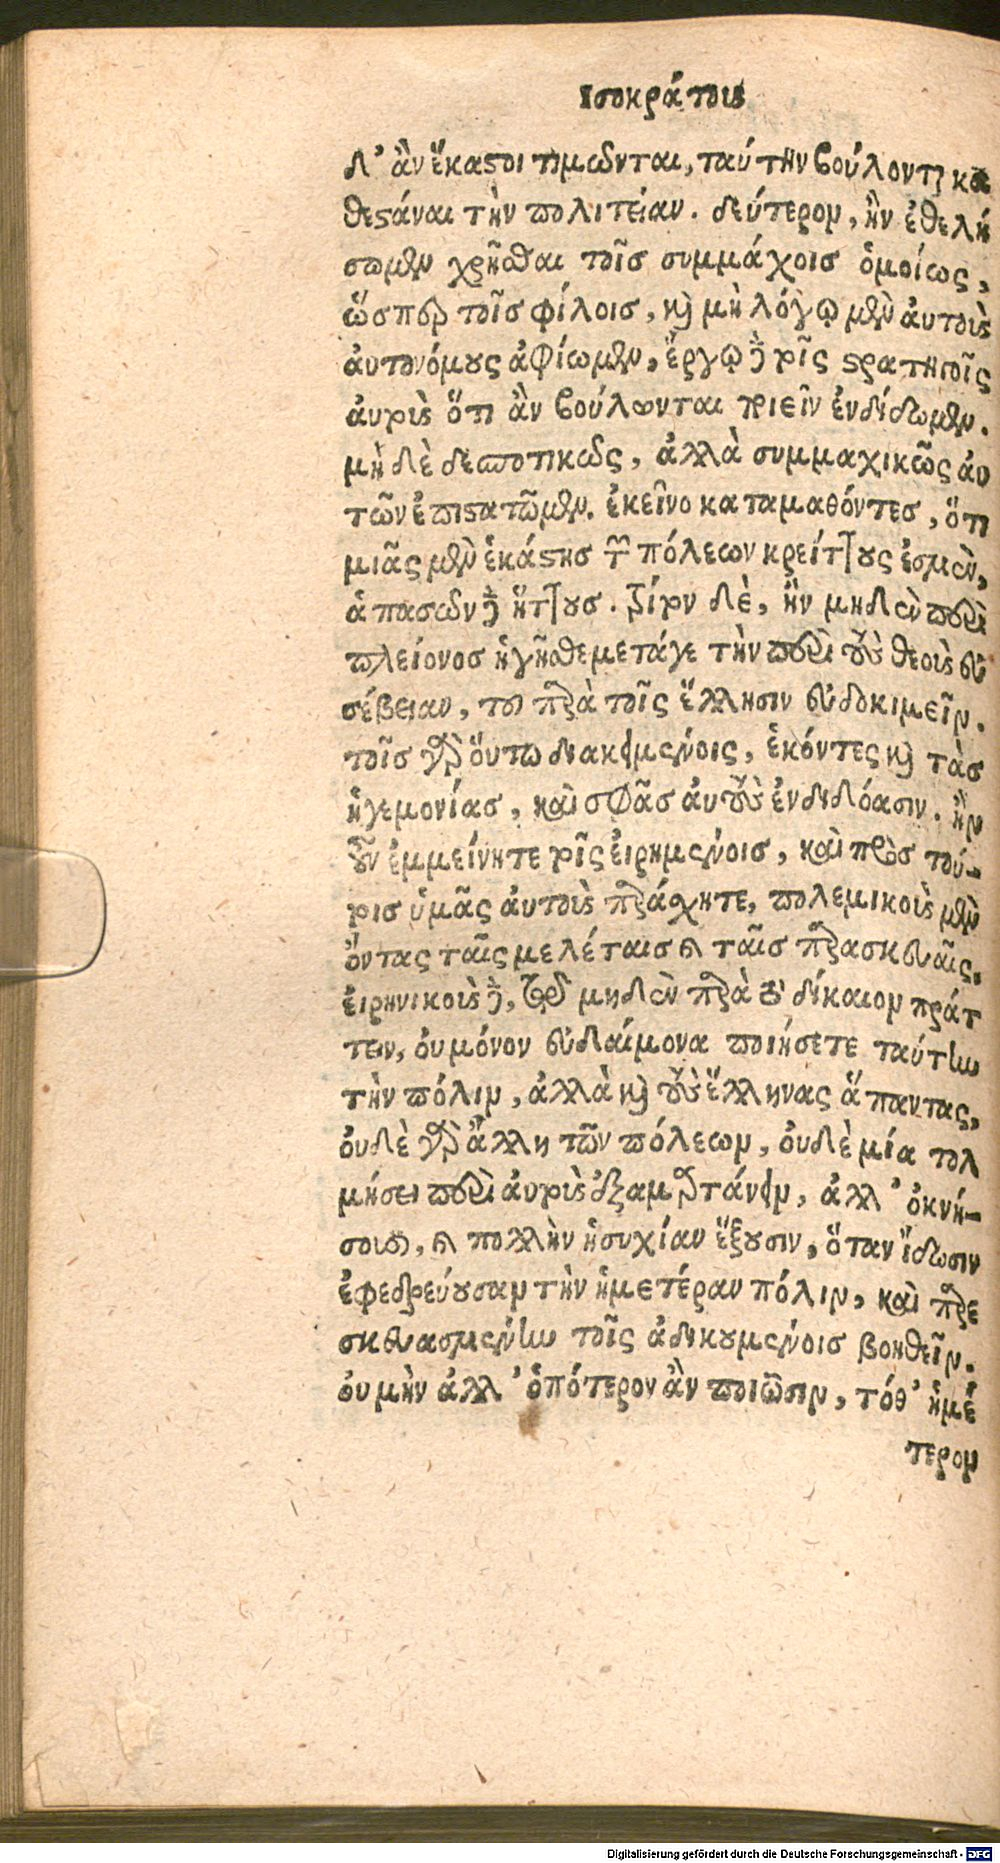 Ισοκράτους
δ’ ἂν ἕκαστοι τιμῶνται, ταύτην βούλονται κα
θεστάναι τὴν πολιτείαν. δεύτερον, ἢν ἐθελή
σωμεν χρῆσθαι τοῖς συμμάχοις ὁμοίως,
ὥσπερ τοῖς φίλοις, καὶ μὴ λόγῳ μὲν ἀυτοὺς
ἀυτονόμους ἀφίωμεν, ἔργῳ δὲ τοῖς στρατηγοῖς
ἀυτοὺς ὅτι ἂν βούλωνται ποιεῖν ἐνδίδωμεν.
μὴ δὲ δεσποτικῶς, ἀλλὰ συμμαχικῶς ἀυ
τῶν ἐπιστατῶμεν. ἐκεῖνο καταμαθόντες, ὅτι
μιᾶς μὲν ἑκάστης τῶν πόλεων κρείττους ἐσμὲν,
ἁπασῶν δὲ ἥττους. τρίτον δὲ, ἢν μηδὲν περὶ
πλείονος ἡγῆσθε μετάγε τὴν περὶ τοὺς θεοὺς εὐ
σέβειαν, τοῦ παρὰ τοῖς ἕλλησιν εὐδοκιμεῖν.
τοῖς γὰρ ὅυτω διακειμένοις, ἑκόντες καὶ τὰς
ἡγεμονίας, καὶ σφᾶς ἀυτοὺς ἐνδιδόασιν. ἢν
οὖν ἐμμείνητε τοῖς ἐιρημένοις, καὶ πρὸς τού-
τοις ὑμᾶς ἀυτοὺς παράσχητε, πολεμικοὺς μὲν
ὄντας ταῖς μελέταις καὶ ταῖς παρασκευαῖς,
ἐιρηνικοὺς δὲ, τῷ μηδὲν παρὰ τὸ δίκαιον πράτ
τειν, ὀυ μόνον εὐδαίμονα ποιήσετε ταύτην
τὴν πόλιν, ἀλλὰ καὶ τοὺς ἕλληνας ἅπαντας,
ὀυδὲ γὰρ ἄλλη τῶν πόλεων, ὀυδὲ μία τολ
μήσει περὶ ἀυτοὺς ἐξαμαρτάνειν, ἀλλ’ ὀκνή-
σουσι, καὶ πολλὴν ἡσυχίαν ἕξουσιν, ὅταν ἴδωσιν
ἐφεδρεύουσαν τὴν ἡμετέραν πόλιν, καὶ παρε
σκευασμένην τοῖς ἀδικουμένοις βοηθεῖν.
ὀυ μὴν ἀλλ’ ὁπότερον ἂν ποιῶσιν, τόθ’ ἡμέ
τερον
Digitalisierung gefördert durch die Deutsche Forschungsgemeinschaft - DFG